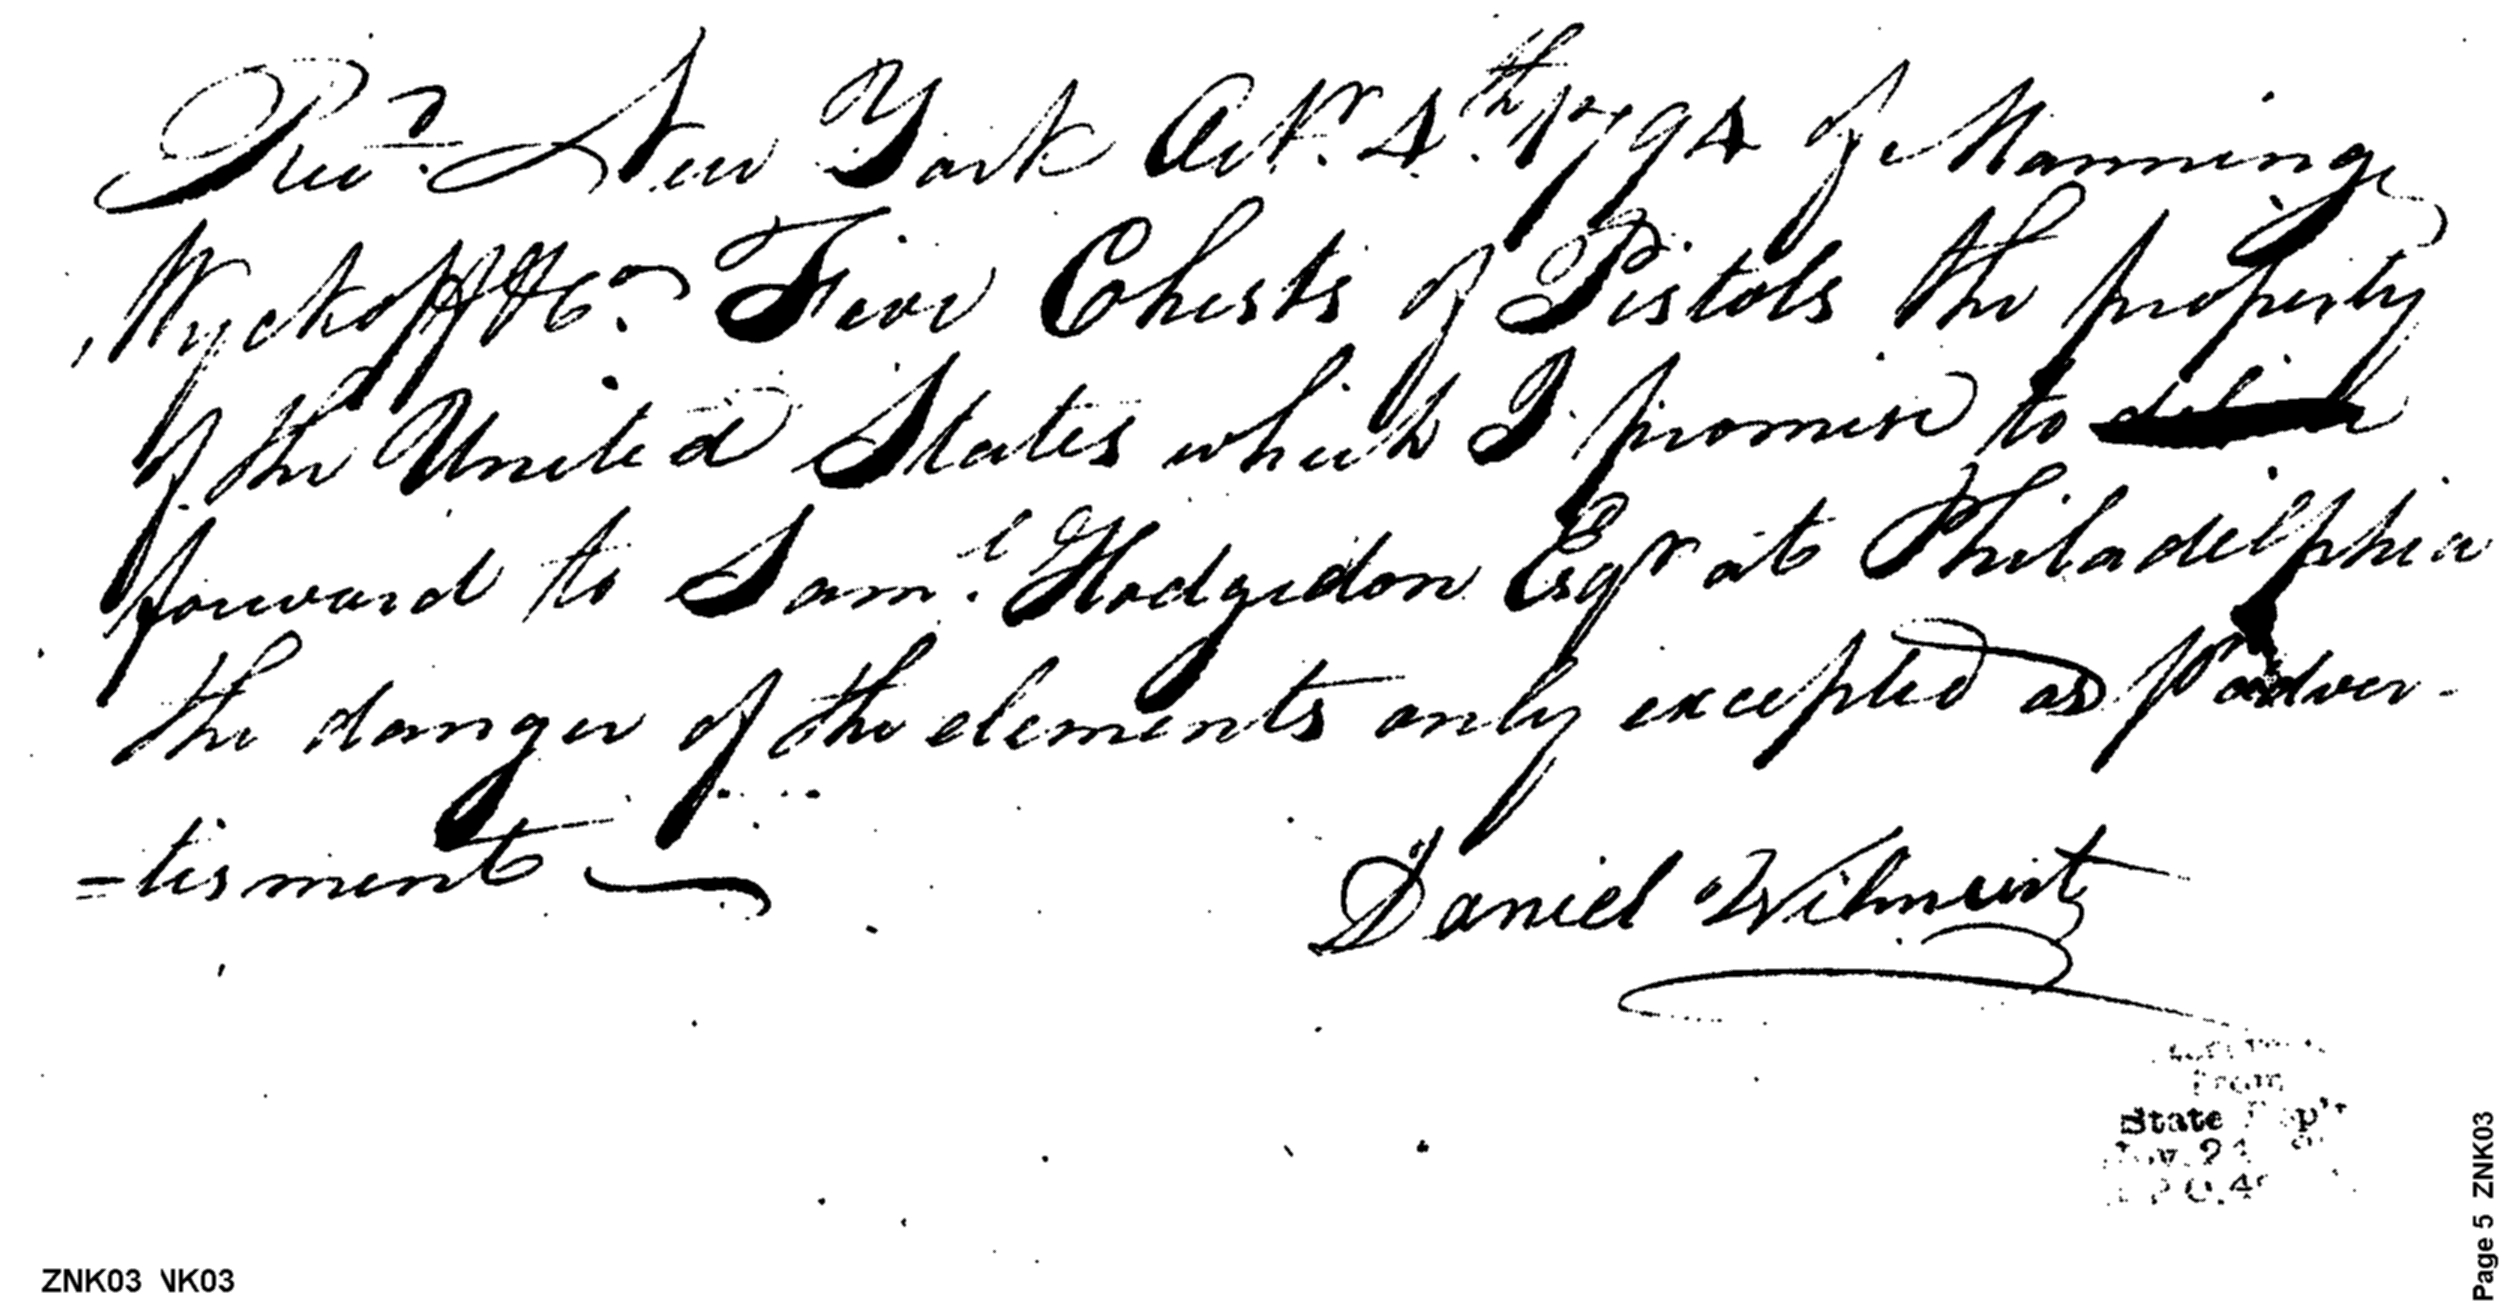 Recd. New York Octr. 4th. 1794 of Manning
Wyckoff &Co. Five Chests of Pistols the property
of the United States which I promise to
forward to Saml. Hodgsdon Esqr at Philadelphia
the danger of the elements only excepted as pr adver-
=tisment
Daniel Wilment
from
State
ZNK03 NK03
Page 5 ZNK03